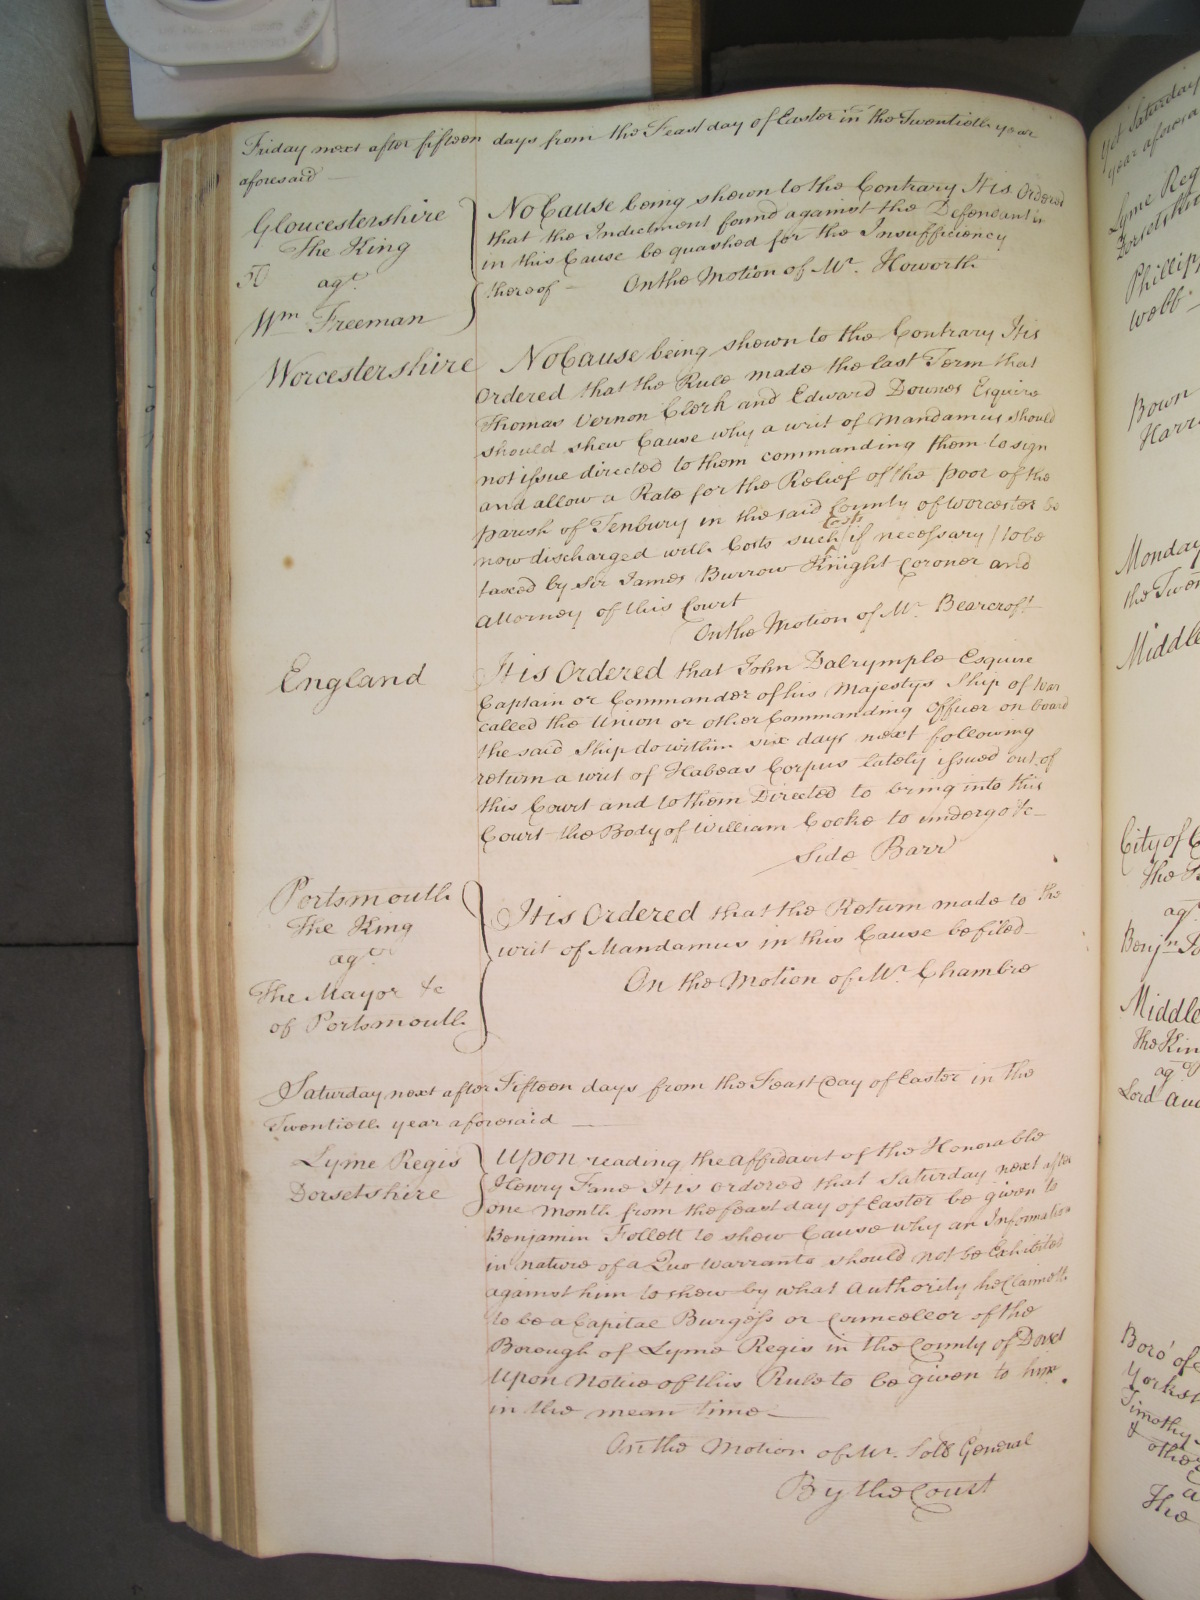 Friday next after fifteen days from the Feast day of Easter in the Twentieth year
aforesaid
Gloucestershire
The King
50 agt
Wm Freeman
No Cause being shewn to the Contrary It is Ordered
that the Indictment found against the Defendant
in this Cause be quashed for the Insufficiency
thereof – On the Motion of Mr. Howorth
Worcestershire
No Cause being shewn to the Contrary It is
Ordered that the Rule made the last Term that
Thomas Vernon Clerk and Edward Downes Esquire
should shew Cause why a writ of Mandamus should
not issue directed to them commanding them to sign
and allow a Rate for the Relief of the poor of the
parish of Tenbury in the said County of Worcester be
now discharged with Costs such Costs if necessary / to be
taxed by Sir James Burrow Knight Coroner and
Attorney of this Court
On the Motion of Mr. Bearcroft
England
It is Ordered that John Dalrymple Esquire
Captain or Commander of his Majestys Ship of War
called the Union or other Commanding Officer on board
the said Ship do within six days next following
return a writ of Habeas Corpus lately issued out of
this Court and to them Directed to bring into this
Court the Body of William Cooke to undergo &c
Side Barr
Portsmouth
The King
agt
The Mayor &c
of Portsmouth
It is Ordered that the Return made to the
writ of Mandamus in this Cause be filed
On the Motion of Mr. Chambre
Saturday next after Fifteen days from the Feast Day of Easter in the
Twentieth year aforesaid
Lyme Regis
Dorsetshire
Upon reading the Affidavit of the Honorable
Henry Fane It is ordered that Saturday next after
one month from the feast day of Easter be given to
Benjamin Follett to shew Cause why an Information
in nature of a Quo Warranto should not be Exhibited
against him to shew by what Authority he Claimeth
to be a Capital Burgess or Councellor of the
Borough of Lyme Regis in the County of Dorset
Upon Notice of this Rule to be given to him
in the mean time
On the Motion of Mr. Solr General
By the Court
Lyme Reg
Dorsetshire
Phillip
Webb
Bown
Harr
Monday
the Twen
Middle
City of
the
agt
Benjn
Middle
The Kin
agt
Lord Aud
Boro' of
Yorksh
Timothy
& other
The